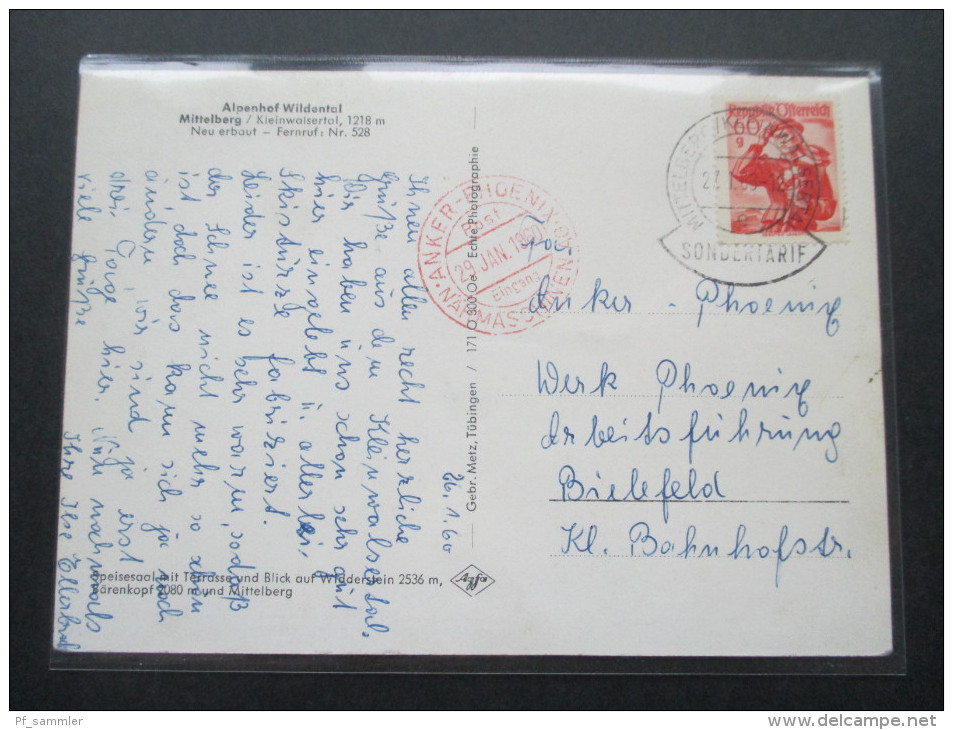 Alpenhof Wildental
Mittelberg / Kleinwalsertal, 1218 m
Neu erbaut – Fernruf: Nr. 528
26.1.60
Ihnen allen recht herzliche
Grüße aus dem Kleinwalsertal.
Wir haben uns schon sehr gut
hier eingelebt u. allerlei
Skistürze fabriziert.
Leider ist es sehr warm, sodaß
der Schnee nicht mehr so schön
ist, doch das kann sich ja noch
ändern, wir sind ja erst
drei Tage hier. Nun nochmals
viele Grüße
Ihre Ilse
Speisesaal mit Terrasse und Blick auf Widderstein 2536 m,
Bärenkopf 2080 m und Mittelberg
Gebr. Metz, Tübingen / 171 O 800 Oe Echte Photographie
Agfa
ANKER-PHOENIX
Post
29. JAN. 1960
Eingang
NÄHMASCHINEN
Republik Österreich
60
g
MITTELBERG
SONDERTARIF
Anker - Phoenix
Werk Phoenix
Arbeitsführung
Bielefeld
Kl. Bahnhofstr.
Pf_sammler
www.delcampe.net